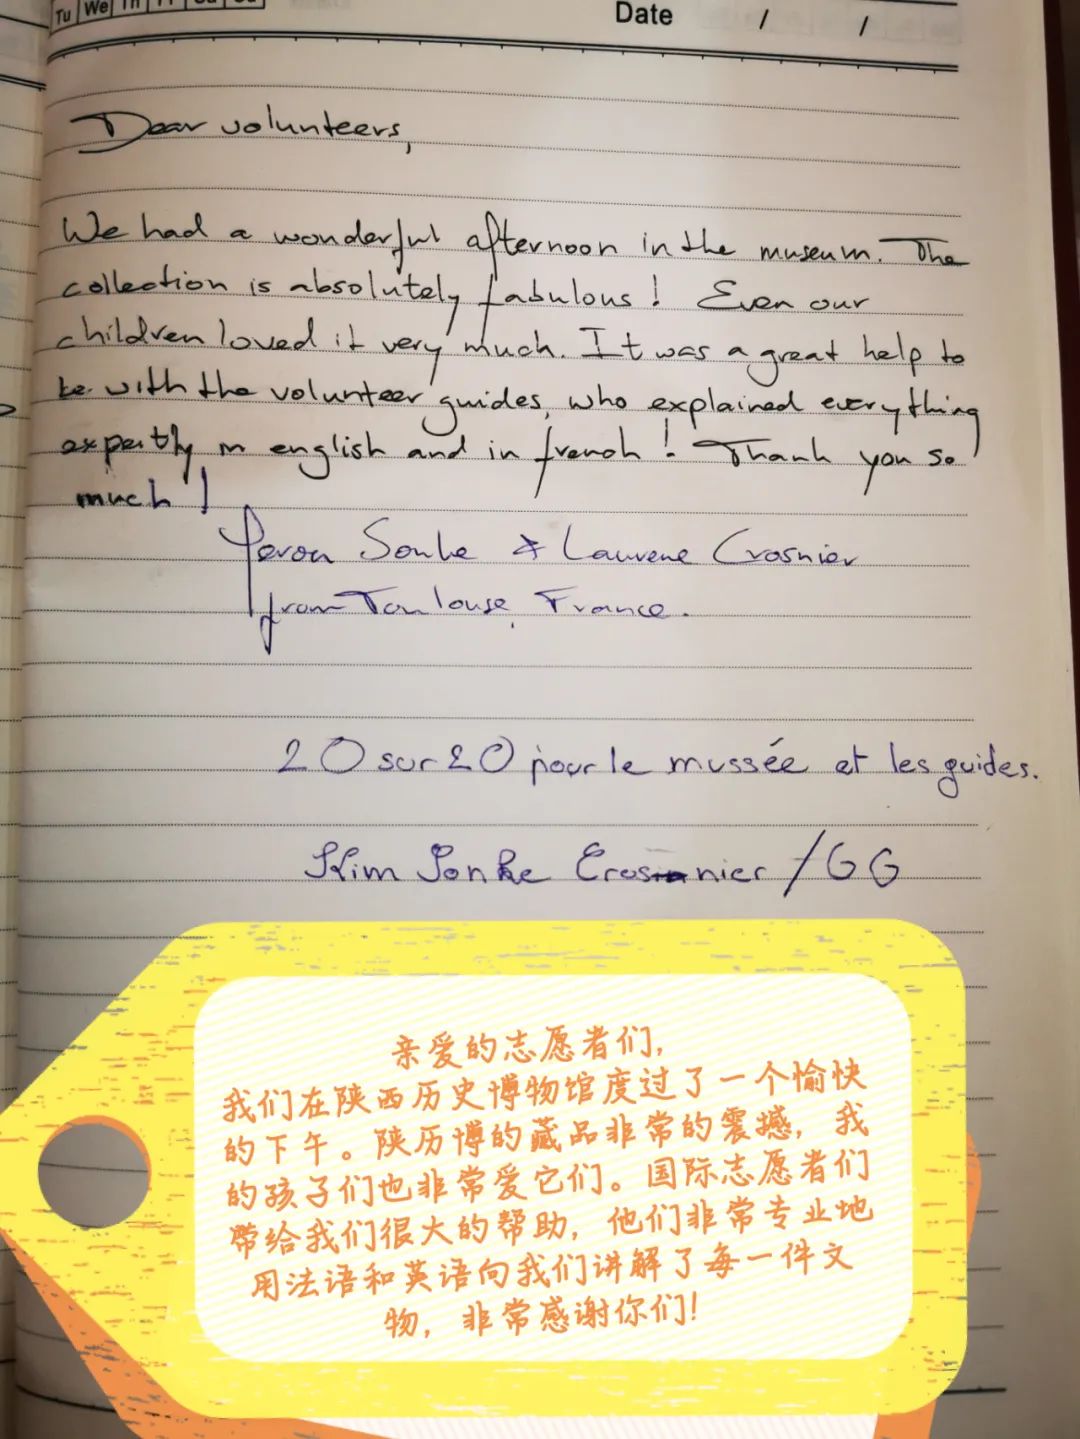 Tu We Th Fr Sa Su
Date / /
Dear volunteers,
We had a wonderful afternoon in the museum. The
collection is absolutely fabulous! Even our
children loved it very much. It was a great help to
be with the volunteer guides, who explained everything
expertly in english and in french! Thank you so
much!
Sonke & Laurene Crosnier
from Toulouse, France.
20 sur 20 pour le mussée et les guides.
Kim Sonke Crosnier / GG
亲爱的志愿者们,
我们在陕西历史博物馆度过了一个愉快
的下午。陕历博的藏品非常的震撼,我
的孩子们也非常爱它们。国际志愿者们
带给我们很大的帮助,他们非常专业地
用法语和英语向我们讲解了每一件文
物,非常感谢你们!